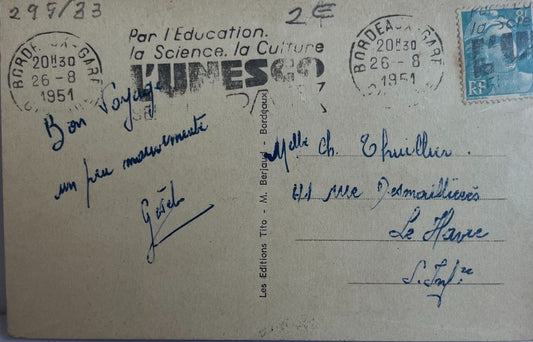 295/33
2€
Par l'Education,
la Science, la Culture
l'UNESCO
BORDEAUX-GARE
20H30
26-8
1951
BORDEAUX-GARE
20H30
26-8
1951
RF
Bon Voyage
un peu mouvementé
Les Editions Tito - M. Berjaud - Bordeaux
Melle Ch. Thuillier
41 rue Desmallières
Le Havre
S. Infre